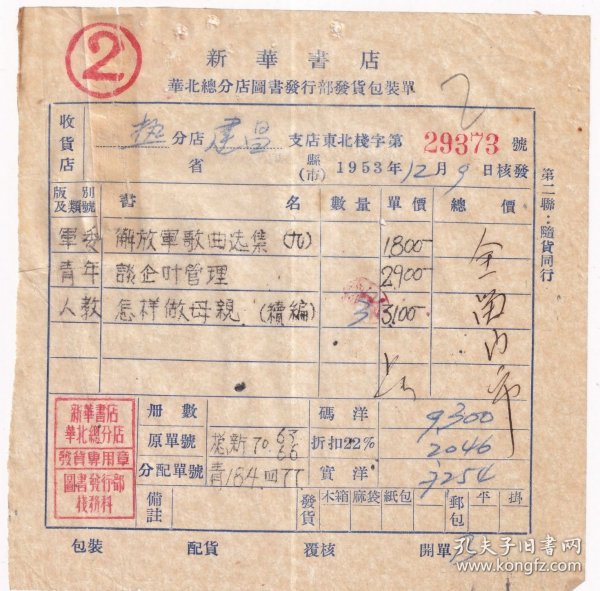 2
新華書店
華北總分店圖書發行部發貨包裝單
2
收貨店 分店 建昌 支店東北棧字第 29373 號
省 縣(市) 1953年12月9日核發
第二聯:隨貨同行
版別及類號 書名 數量 單價 總價
軍委 解放軍歌曲选集(九) 1,800-
青年 談企叶管理 2,900-
人教 怎样做母親(續編) 3 3,100-
新華書店
華北總分店
發貨專用章
圖書發行部
棧務科
册數 碼洋 9300
原單號 新70 65 66 折扣22% 2046
分配單號 青184 四77 實洋 7254
備註 發貨 木箱 麻袋 紙包 郵包 平 掛
包装 配貨 覆核 開單
孔夫子旧書网
www.kongfz.com